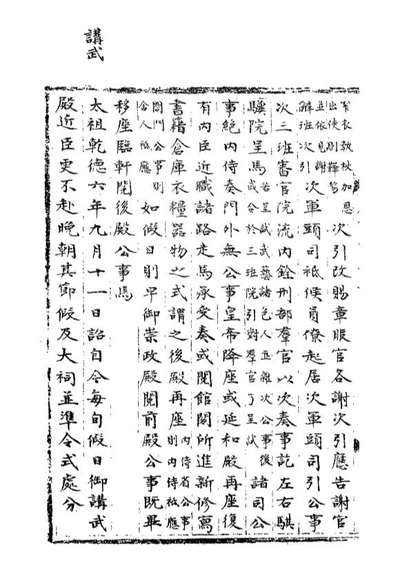 加恩
出使
次引改賜章服官各謝次引應告謝官
並依見謝
班次引
次軍頭司祗候員僚起居次軍頭司引公事
次三班審官院流內銓刑部羣官以次奏事訖左右騏
驥院呈馬
若呈試武藝諸色人並雖次公事後
或分於三班院引對羣官了呈試
諸司公
事絕內侍奏門外無公事皇帝降座或延和殿再座復
有內臣近職諸路走馬承受奏或閱館閣所進新修寫
書籍倉庫衣糧器物之式謂之後殿再座
內侍省公事
則內侍祗應
閤門公事則
舍人祗應
如假日則早御崇政殿閱前殿公事既畢
移座臨軒閱後殿公事焉
太祖乾德六年九月十一日詔自今每旬假日御講武
殿近臣更不赴晚朝其節假及大祠並準令式處分
講武